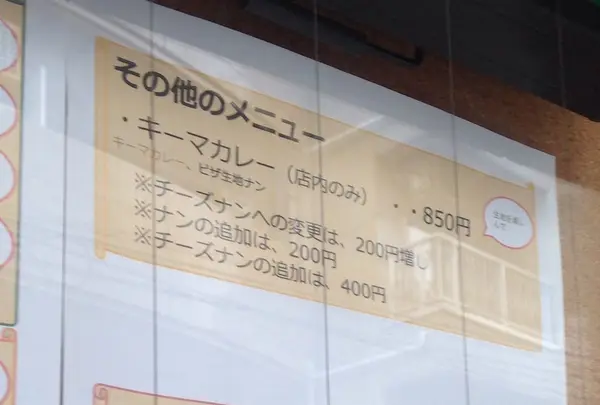 その他のメニュー
・キーマカレー（店内のみ）・・850円
キーマカレー、ピザ生地ナン
※チーズナンへの変更は、200円増し
※ナンの追加は、200円
※チーズナンの追加は、400円